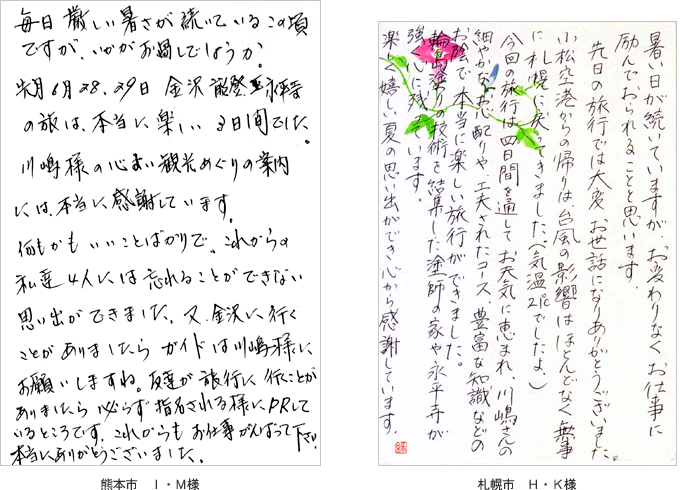 毎日 厳しい暑さが 続いているこの頃
ですが、いかがお過しでしょうか?
先月 6月28、29日 金沢 能登 永平寺
の旅は、本当に楽しい 2日間でした。
川嶋様の心よい観光めぐりの案内
には、本当に感謝しています。
何もかも いいことばかりで、これからの
私達 4人には忘れることができない
思い出ができました。又、金沢に行く
ことがありましたら ガイドは川嶋様に
お願いしますね。友達が 旅行に行くことが
ありましたら 必らず指名される様にPRして
いるところです。これからも お仕事がんばって下さい
本当にありがとうございました。
熊本市 I・M様
暑い日が続いていますが、お変わりなく、お仕事に
励んでおられることと思います。
先日の旅行では大変 お世話になりありがとうございました。
小松空港からの帰りは、台風の影響はほとんどなく無事
に札幌に戻ってきました。(気温21℃でしたよ。)
今回の旅行は四日間を通して お天気に恵まれ、川嶋さんの
細やかなお心配りや、工夫されたコース、豊富な知識などの
お陰で、本当に楽しい旅行ができました。
輪島塗りの技術を結集した塗師の家や永平寺が
強く心に残っています。
楽しく嬉しい夏の思い出ができ心から感謝しています。
札幌市 H・K様